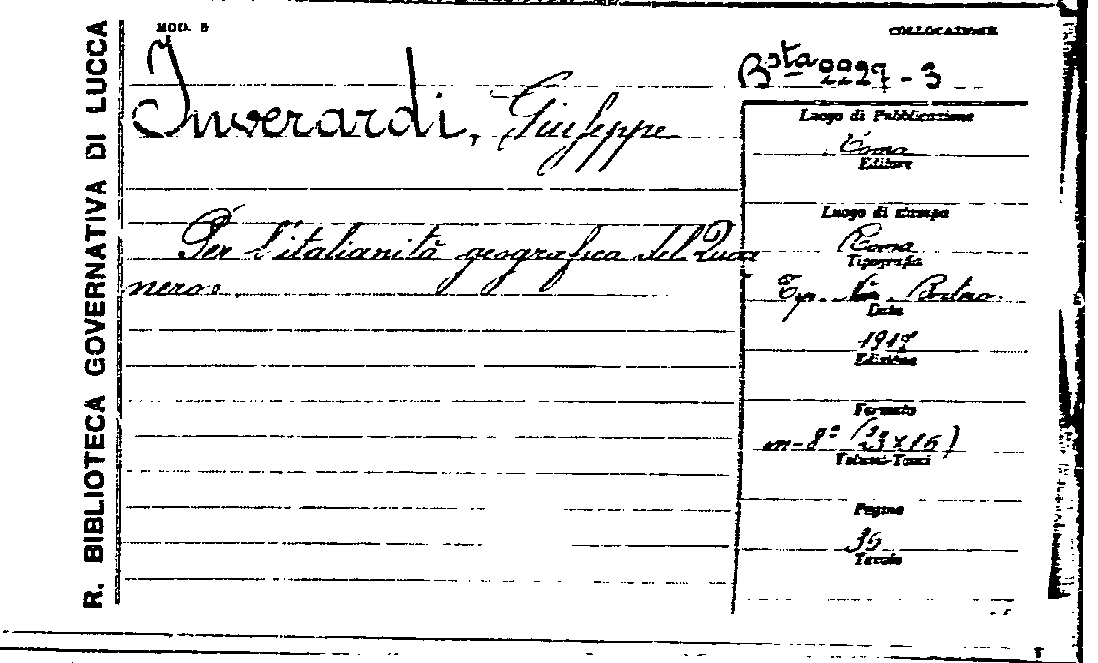 R. BIBLIOTECA GOVERNATIVA DI LUCCA
MOD. 5
COLLOCAZIONE
Bsta 2227 - 3
Inverardi, Giuseppe
Per l'italianità geografica del Quar
nero.
Luogo di Pubblicazione
Roma
Editore
Luogo di stampa
Roma
Tipografia
Tip.
Data
1917
Edizione
Formato
in-8° (23x16)
Volumi-Tomi
Pagine
36
Tavole